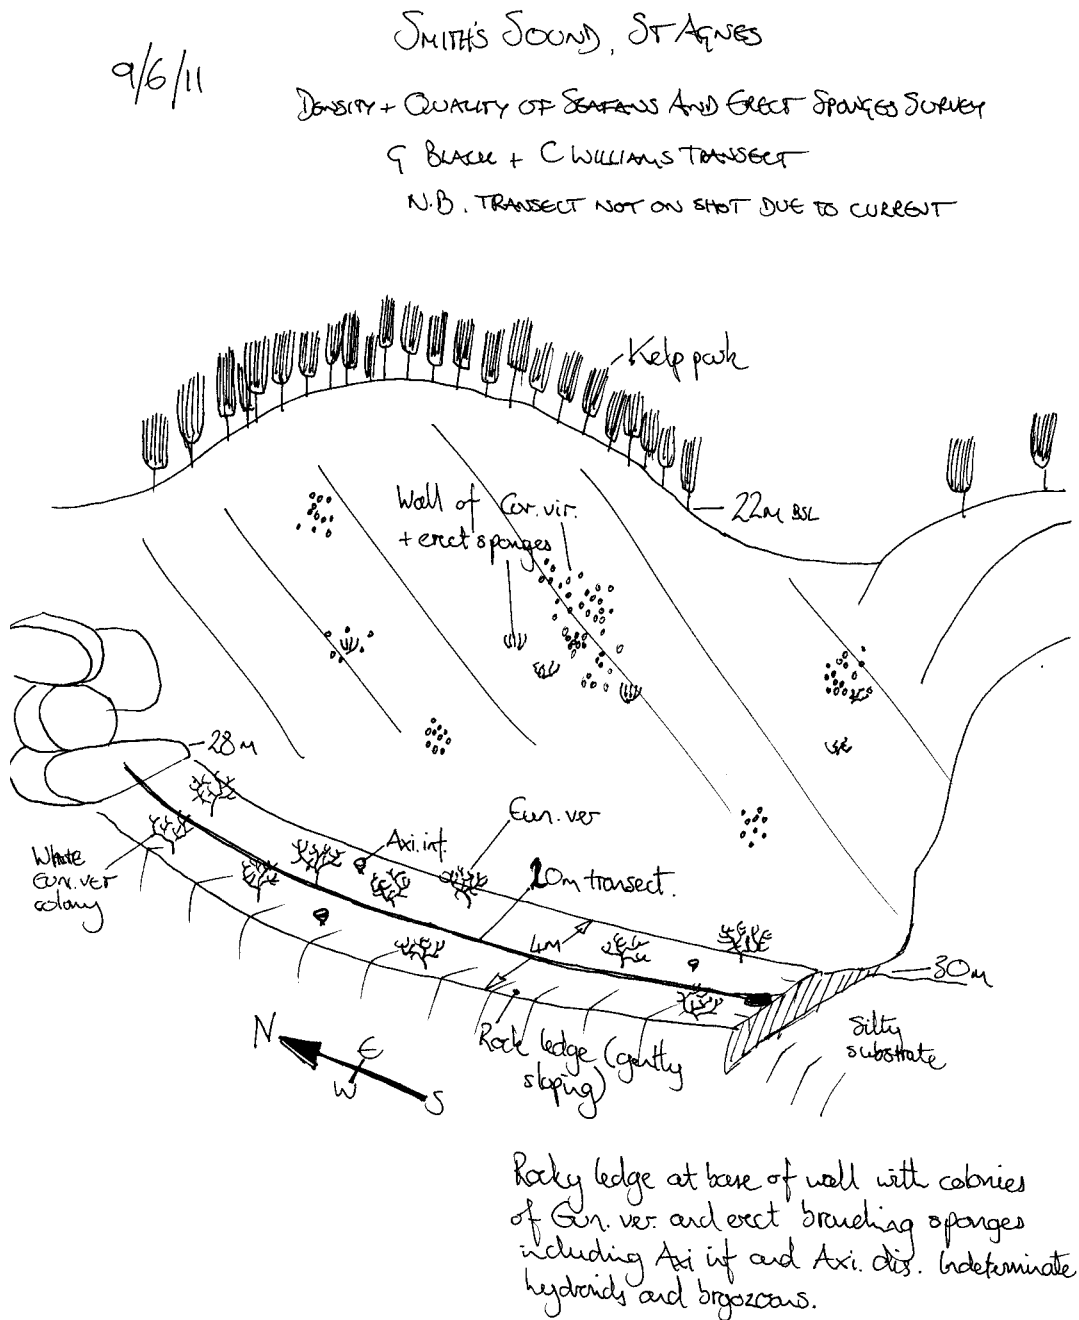 9/6/11
SMITH'S SOUND, ST AGNES
DENSITY + QUALITY OF SEAFANS AND ERECT SPONGES SURVEY
G BLACK + C WILLIAMS TRANSECT
N.B. TRANSECT NOT ON SHOT DUE TO CURRENT
Kelp park
Wall of Cor. vir.
+ erect sponges
22m BSL
28m
Eun. ver
Axi. inf.
White
Eun. ver
colony
10m transect.
4m
30m
Rock ledge (gently
sloping)
Silty
substrate
N
E
W
S
Rocky ledge at base of wall with colonies
of Eun. ver. and erect branching sponges
including Axi inf and Axi. dis. Indeterminate
hydroids and bryozoans.